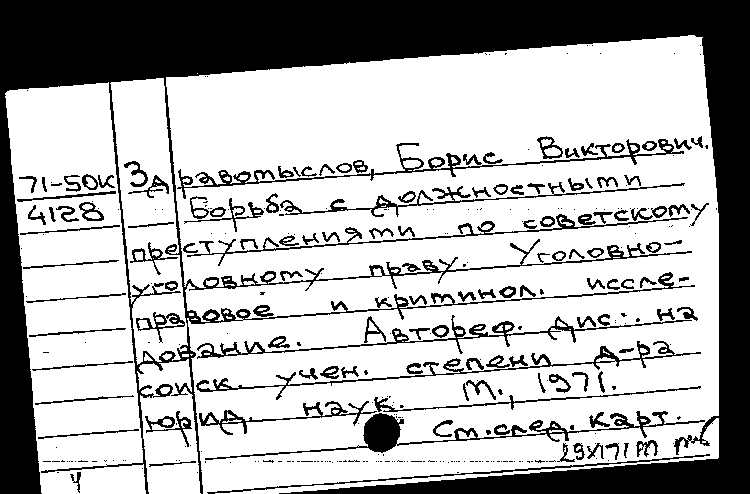 71-50к Здравомыслов, Борис Викторович.
4128 Борьба с должностными
преступлениями по советскому
уголовному праву. Уголовно-
правовое и криминол. иссле-
дование. Автореф. дис... на
соиск. учен. степени д-ра
юрид. наук. М., 1971.
См. след. карт.